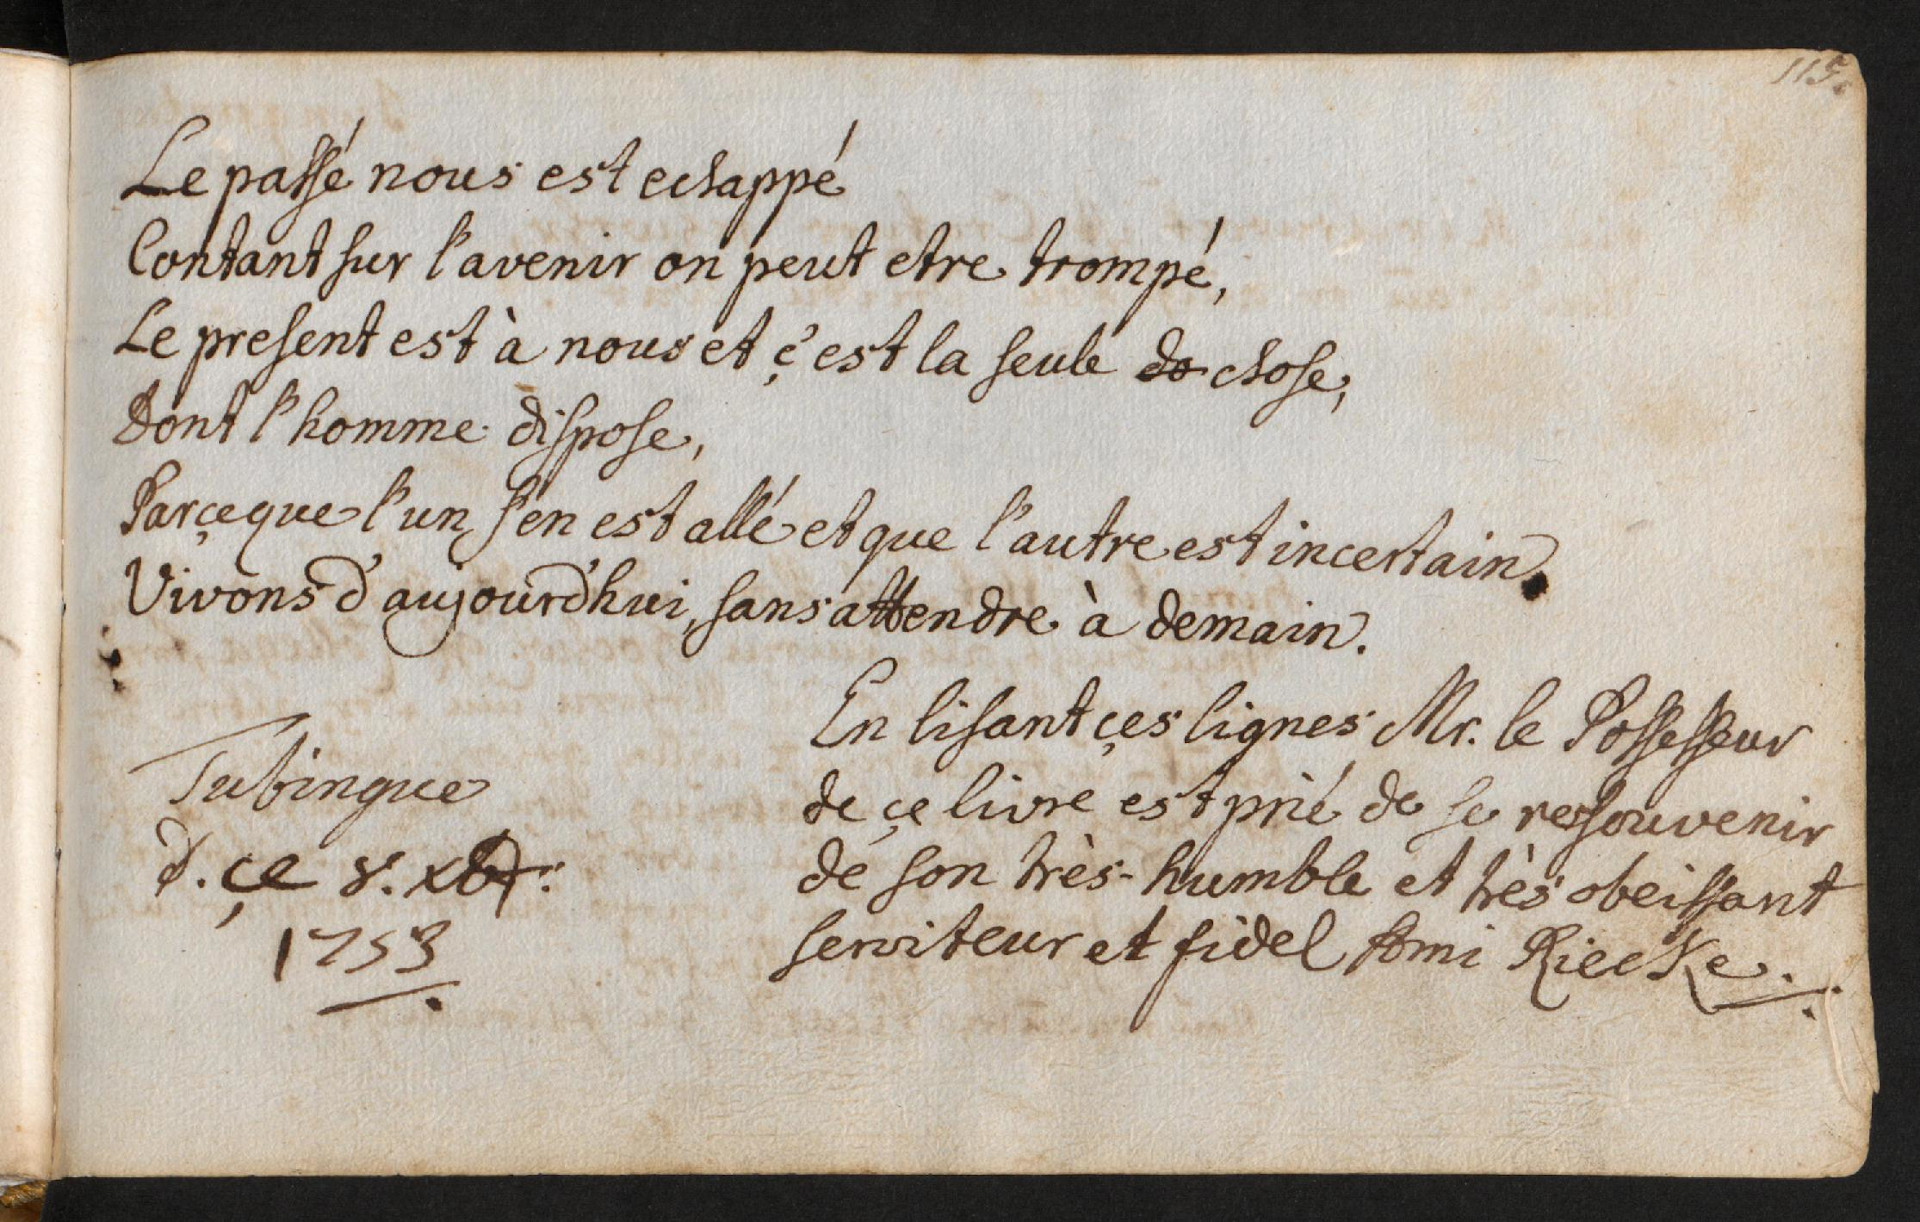 115.
Le passé nous est echappé
Contant sur l'avenir on peut etre trompé,
Le present est à nous et ç'est la seule do chose,
Dont l'homme dispose,
Parçeque l'un s'en est allé et que l'autre est incertain.
Vivons d'aujourd'hui, sans attendre à demain.
En lisant çes lignes Mr. le Possesseur
de çe livre est prié de se ressouvenir
de son très-humble et très obeissant
serviteur et fidel Ami Riecke.
Tubingue
d. çe 8. xbr:
1753